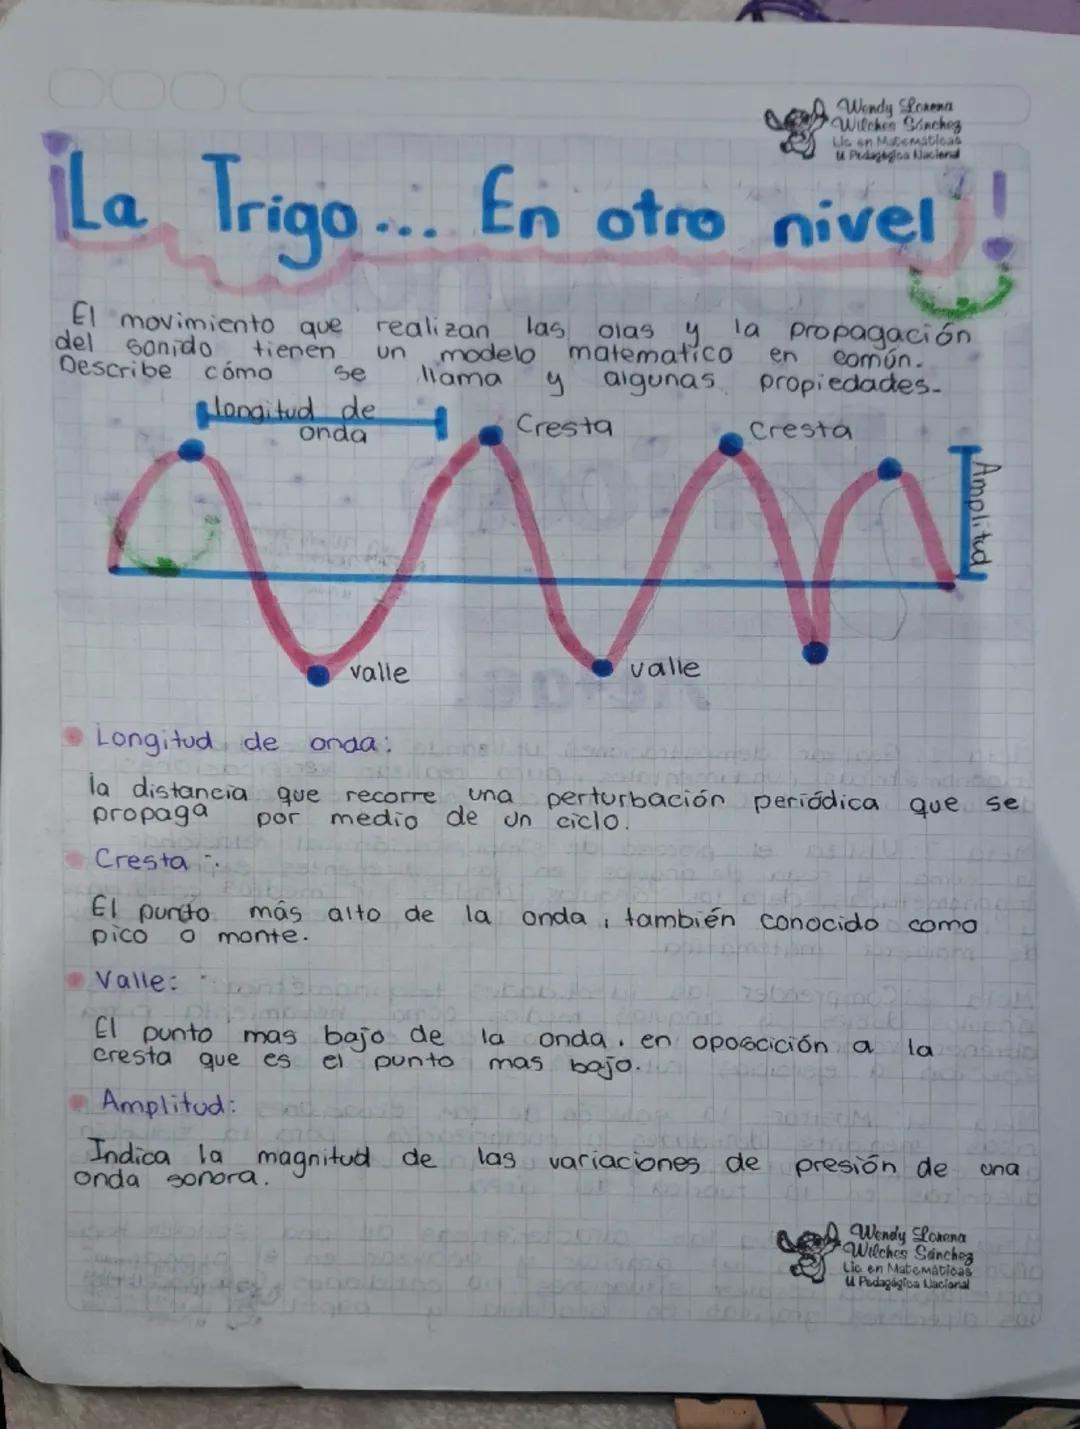 Wendy Lorena
Wilches Sánchez
Lic en Matemáticas
U Pedagógica Nacional
¡La Trigo... En otro nivel!
El movimiento que realizan las olas y la propagación
del sonido tienen un modelo matematico en común.
Describe cómo se llama y algunas propiedades.
longitud de
onda
Cresta
Cresta
Amplitud
valle
valle
Longitud de onda:
la distancia que recorre una perturbación periódica que se
propaga por medio de un ciclo.
Cresta :.
El punto más alto de la onda, también conocido como
pico o monte.
Valle:
El punto mas bajo de la onda. en oposcición a la
cresta que es el punto mas bajo.
Amplitud:
Indica la magnitud de las variaciones de presión de una
onda sonora.
Wendy Lorena
Wilches Sánchez
Lic en Matemáticas
U Pedagógica Nacional